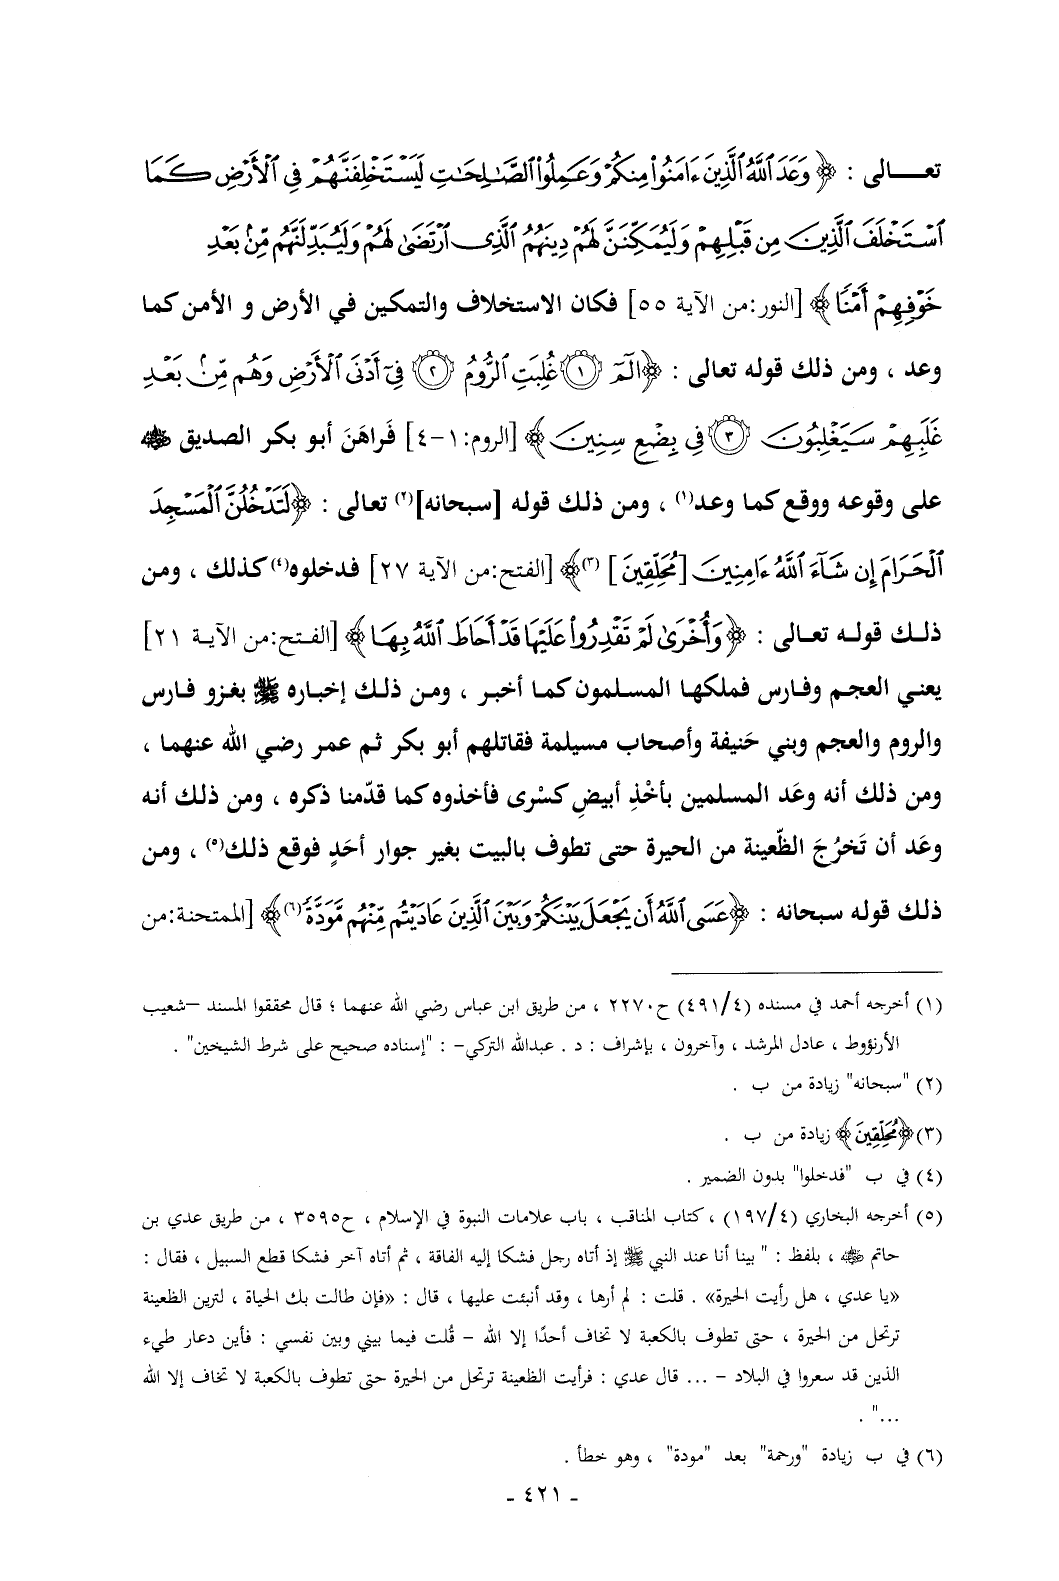 تعـــالى : ﴿ وَعَدَ اللَّهُ الَّذِينَ ءَامَنُوا مِنكُمْ وَعَمِلُوا الصَّالِحَاتِ لَيَسْتَخْلِفَنَّهُمْ فِي الْأَرْضِ كَمَا
اسْتَخْلَفَ الَّذِينَ مِن قَبْلِهِمْ وَلَيُمَكِّنَنَّ لَهُمْ دِينَهُمُ الَّذِى ارْتَضَىٰ لَهُمْ وَلَيُبَدِّلَنَّهُم مِّنْ بَعْدِ
خَوْفِهِمْ أَمْنًا ﴾ [النور:من الآية ٥٥] فكان الاستخلاف والتمكين في الأرض و الأمن كما
وعد ، ومن ذلك قوله تعالى : ﴿ الٓمٓ ﴿١﴾ غُلِبَتِ الرُّومُ ﴿٢﴾ فِىٓ أَدْنَى الْأَرْضِ وَهُم مِّنْ بَعْدِ
غَلَبِهِمْ سَيَغْلِبُونَ ﴿٣﴾ فِي بِضْعِ سِنِينَ ﴾ [الروم:١-٤] فَراهَنَ أبو بكر الصديق ﵁
على وقوعه ووقع كما وعد(١) ، ومن ذلك قوله [سبحانه](٢) تعالى : ﴿ لَتَدْخُلُنَّ الْمَسْجِدَ
الْحَرَامَ إِن شَآءَ اللَّهُ ءَامِنِينَ [مُحَلِّقِينَ ] (٣)﴾ [الفتح:من الآية ٢٧] فدخلوه(٤) كذلك ، ومن
ذلـك قولـه تعـالى : ﴿ وَأُخْرَىٰ لَمْ تَقْدِرُوا عَلَيْهَا قَدْ أَحَاطَ اللَّهُ بِهَا ﴾ [الفتح:من الآيـة ٢١]
يعني العجم وفارس فملكها المسلمون كما أخبر ، ومن ذلك إخباره ﷺ بغزو فارس
والروم والعجم وبني حَنيفة وأصحاب مسيلمة فقاتلهم أبو بكر ثم عمر رضي الله عنهما ،
ومن ذلك أنه وعَد المسلمين بأخْذِ أبيضِ كسْرى فأخذوه كما قدّمنا ذكره ، ومن ذلك أنه
وعَد أن تَخرُجَ الظّعينة من الحيرة حتى تطوف بالبيت بغير جوار أحَدٍ فوقع ذلك(٥) ، ومن
ذلك قوله سبحانه : ﴿ عَسَى اللَّهُ أَن يَجْعَلَ بَيْنَكُمْ وَبَيْنَ الَّذِينَ عَادَيْتُم مِّنْهُم مَّوَدَّةً(٦)﴾ [الممتحنة:من
(١) أخرجه أحمد في مسنده (٤٩١/٤) ح٢٢٧٠ ، من طريق ابن عباس رضي الله عنهما ؛ قال محققوا المسند –شعيب
الأرنؤوط ، عادل المرشد ، وآخرون ، بإشراف : د . عبدالله التركي– : "إسناده صحيح على شرط الشيخين" .
(٢) "سبحانه" زيادة من ب .
(٣) ﴿مُحَلِّقِينَ﴾ زيادة من ب .
(٤) في ب "فدخلوا" بدون الضمير .
(٥) أخرجه البخاري (١٩٧/٤) ، كتاب المناقب ، باب علامات النبوة في الإسلام ، ح٣٥٩٥ ، من طريق عدي بن
حاتم ﵁ ، بلفظ : " بينا أنا عند النبي ﷺ إذ أتاه رجل فشكا إليه الفاقة ، ثم أتاه آخر فشكا قطع السبيل ، فقال :
«يا عدي ، هل رأيت الحيرة» . قلت : لم أرها ، وقد أنبئت عليها ، قال : «فإن طالت بك الحياة ، لترين الظعينة
ترتحل من الحيرة ، حتى تطوف بالكعبة لا تخاف أحدًا إلا الله – قُلت فيما بيني وبين نفسي : فأين دعار طيء
الذين قد سعروا في البلاد – ... قال عدي : فرأيت الظعينة ترتحل من الحيرة حتى تطوف بالكعبة لا تخاف إلا الله
..." .
(٦) في ب زيادة "ورحمة" بعد "مودة" ، وهو خطأ .
- ٤٢١ -